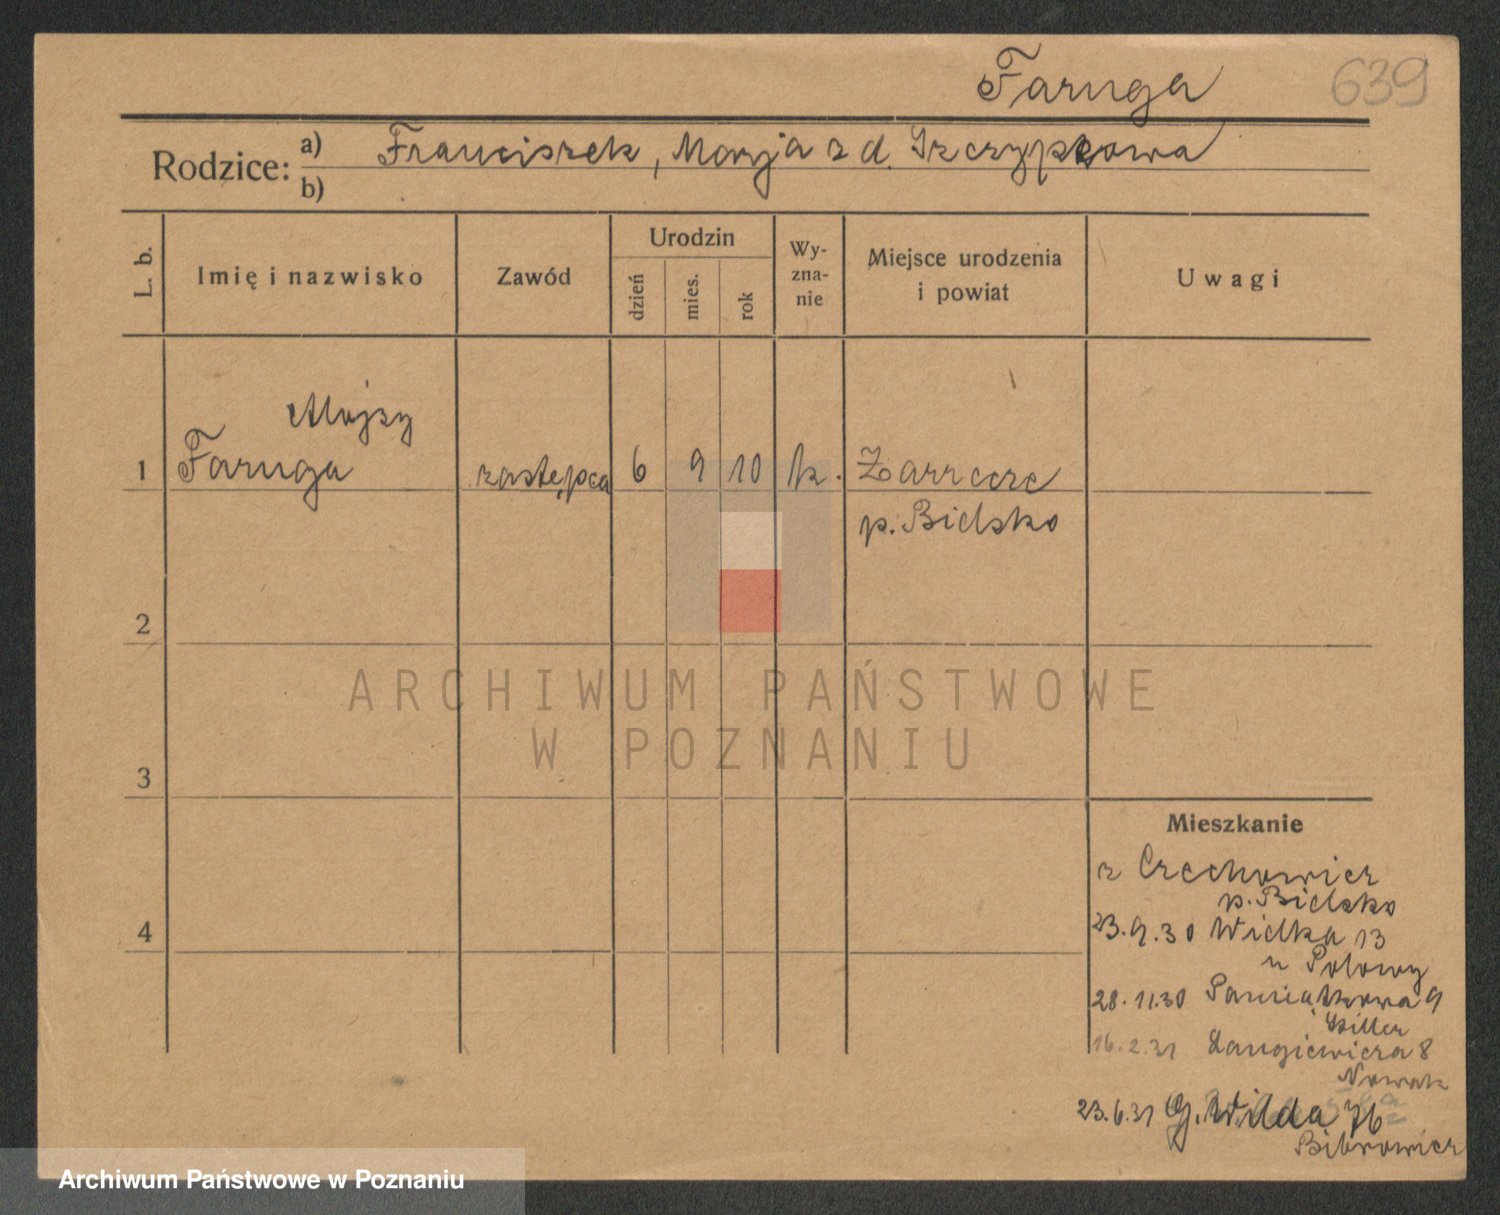 Faruga 639
Rodzice: a) Franciszek, Marja z d. Szczypkowa
b)
L. b. Imię i nazwisko Zawód Urodzin dzień mies. rok Wy-zna-nie Miejsce urodzenia i powiat Uwagi
Alojzy
1 Faruga zastępca 6 9 10 k. Zarzecze
p. Bielsko
2
ARCHIWUM PAŃSTWOWE
W POZNANIU
3
Mieszkanie
z Czechowicz
p. Bielsko
4
23.9.30 Wielka 13
u Polowy
28.11.30 Pamiątkowa 9
Hiller
16.2.31 Langiewicza 8
Nowak
23.6.31 G. Wilda 76
Bibrowicz
Archiwum Państwowe w Poznaniu